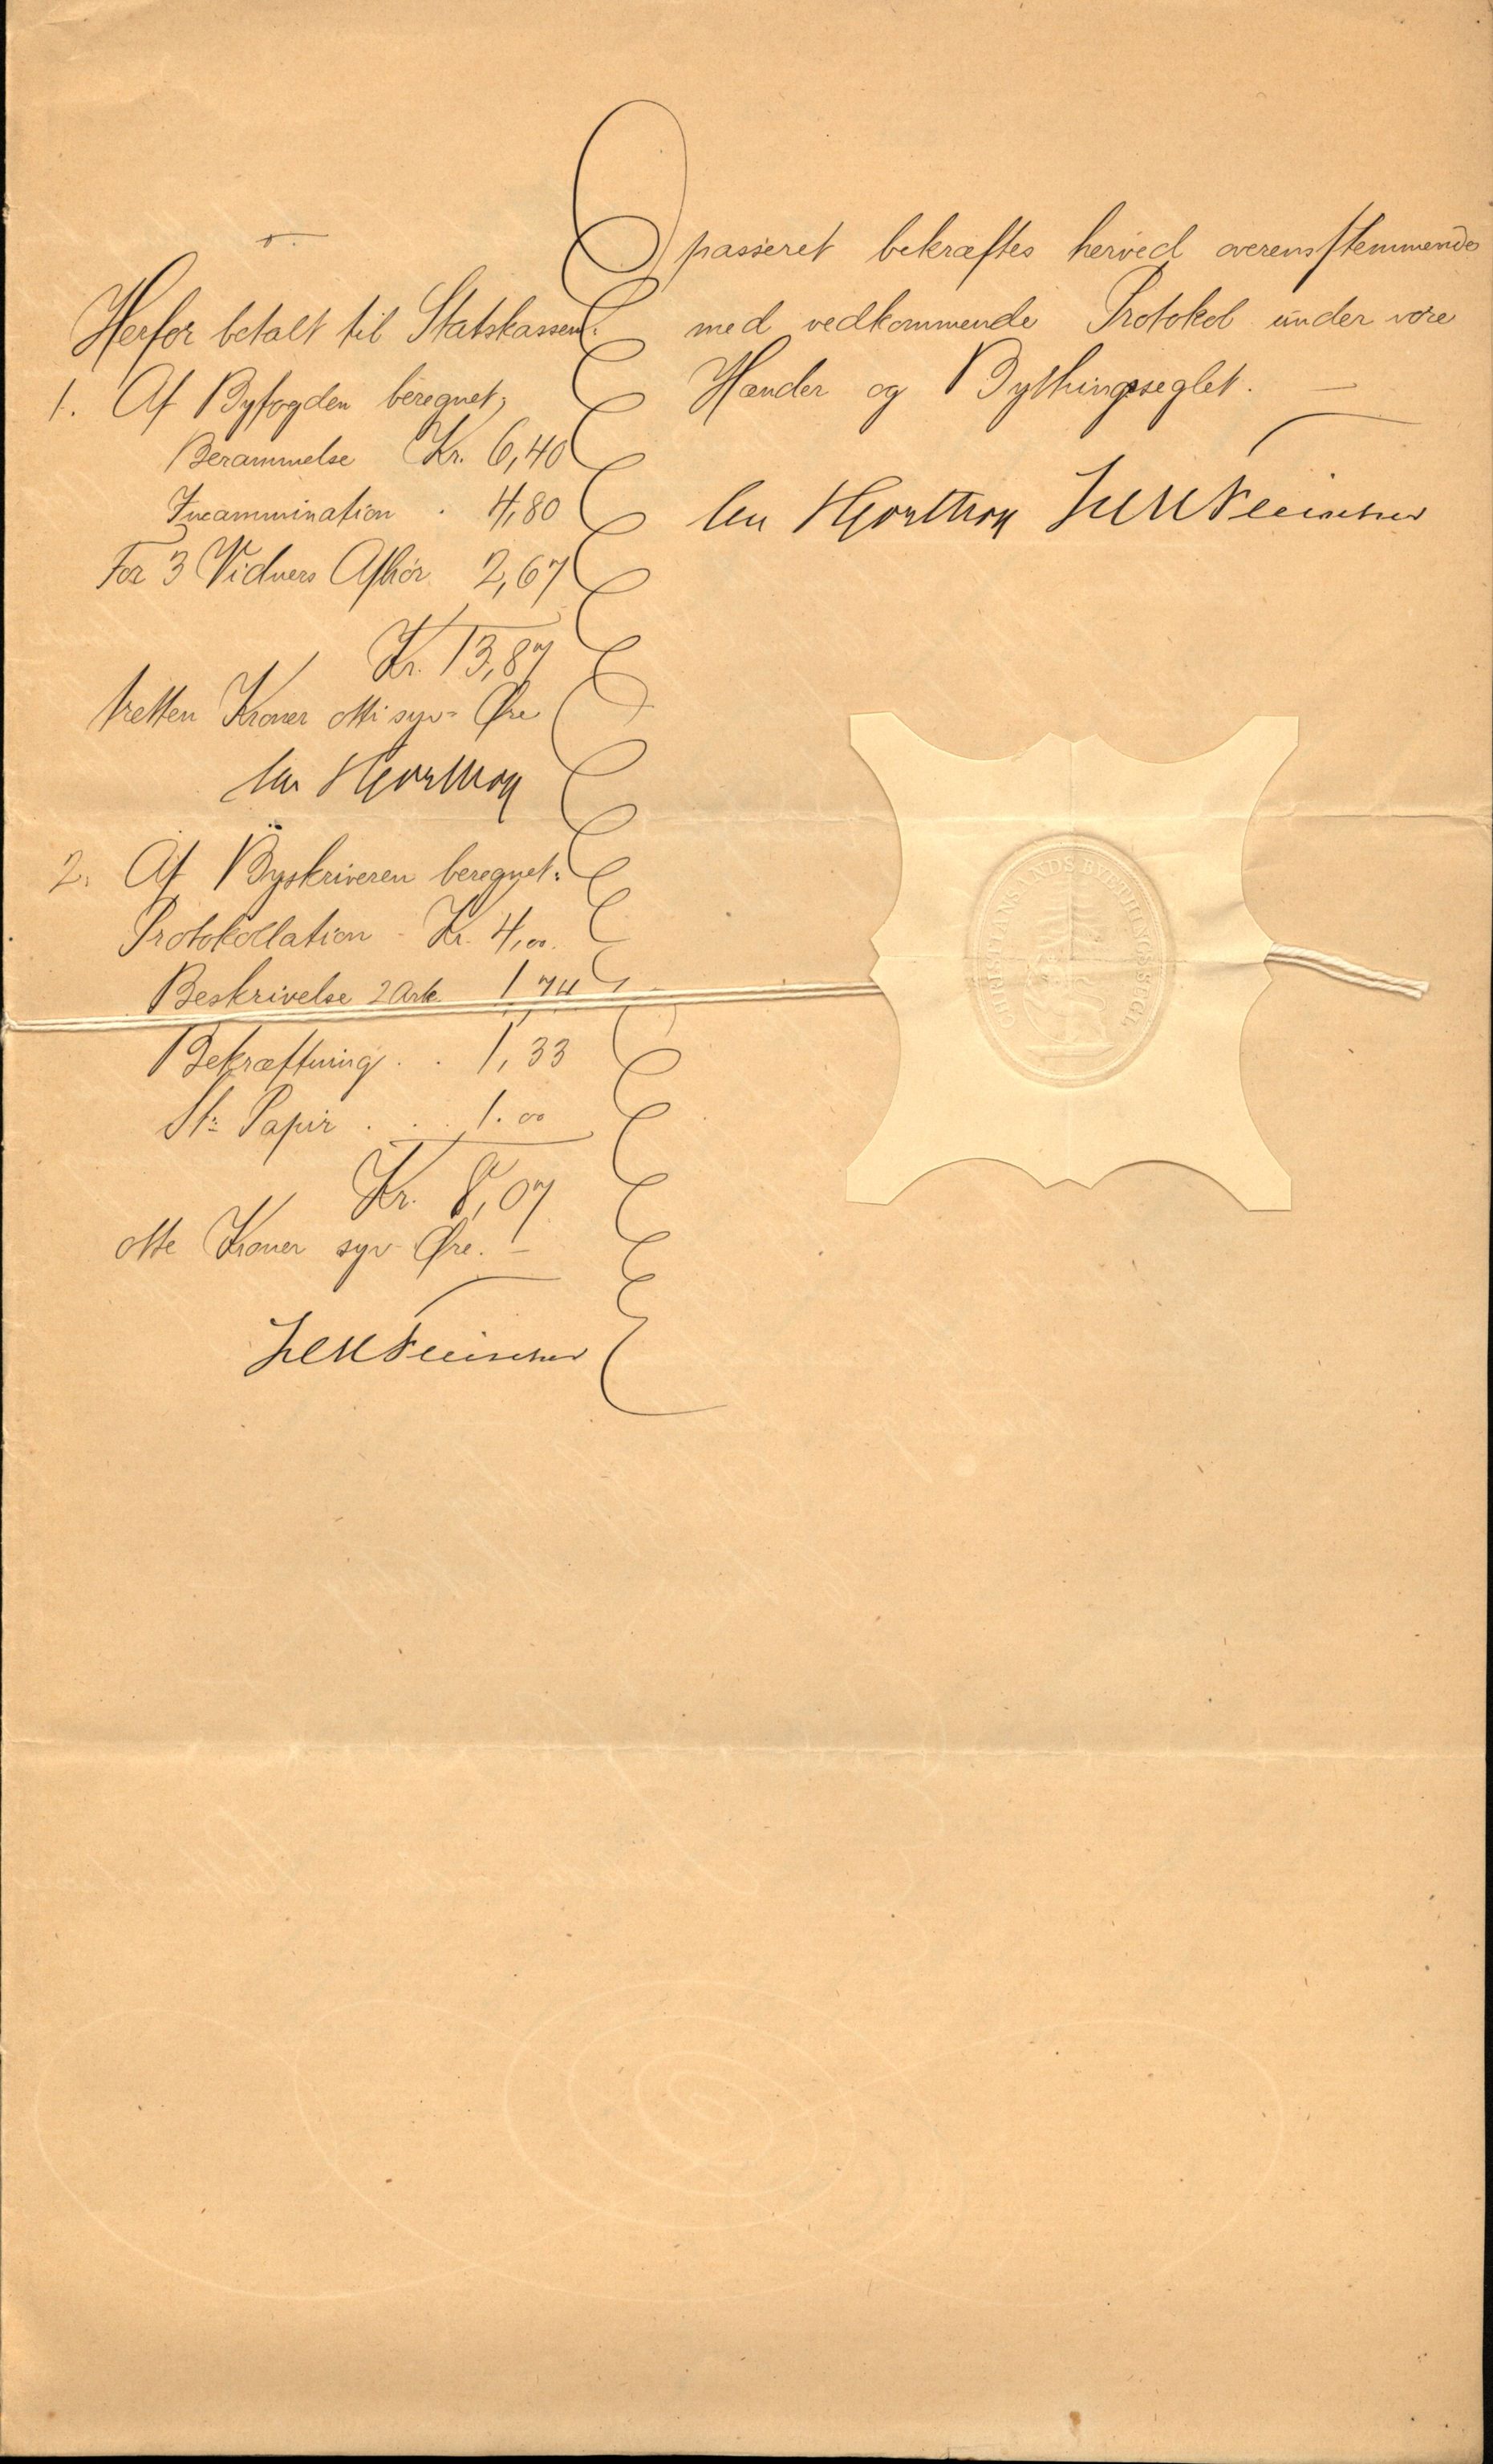 Herfor betalt til Statskassen:
1. Af Byfogden beregnet;
Berammelse Kr. 6,40
Incammination . 4,80
For 3 Vidners Afhör 2,67
Kr. 13,87
tretten Kroner otti syv Øre
2. Af Byskriveren beregnet:
Protokollation - Kr. 4,00.
Beskrivelse 2 Ark 1,74
Bekræftning . . 1,33
St: Papir . . . 1.00
Kr. 8,07
otte Kroner syv Øre. -
passeret bekræftes herved overensstemmende
med vedkommende Protokol under vore
Hænder og Bythingsseglet. -
Hjorthoy
CHRISTIANSSANDS BYETHINGS SEGL